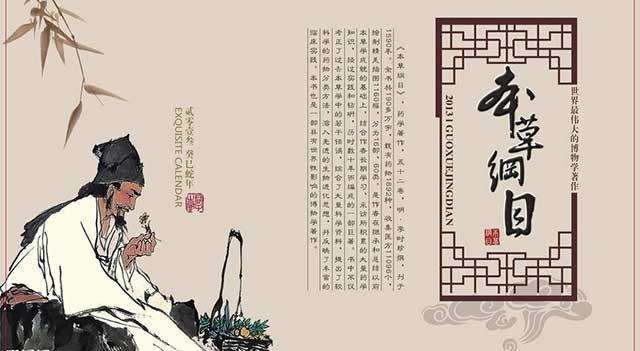 世界最伟大的博物学著作
本草綱目
2013 | GUOXUEJINGDIAN
《本草纲目》，药学著作，五十二卷，明·李时珍撰，刊于
1590年。全书共190多万字，载有药物1892种，收集医方11096个，
绘制精美插图1160幅，分为16部、60类。是作者在继承和总结以前
本草学成就的基础上，结合作者长期学习、采访所积累的大量药学
知识，经过实践和钻研，历时数十年而编成的一部巨著。书中不仅
考正了过去本草学中的若干错误，综合了大量科学资料，提出了较
科学的药物分类方法，溶入先进的生物进化思想，并反映了丰富的
临床实践。本书也是一部具有世界性影响的博物学著作。
貳零壹叁 癸巳蛇年
EXQUISITE CALENDAR